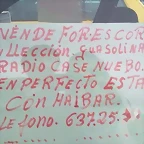 VÉNDE FOR.ESCOR
YLLECCIÓN, GUASOLINA
RADIO CASE NUEBO.
EN PERFECTO ESTA
CÓN HAIBAR.
LEFONO. 637.25.